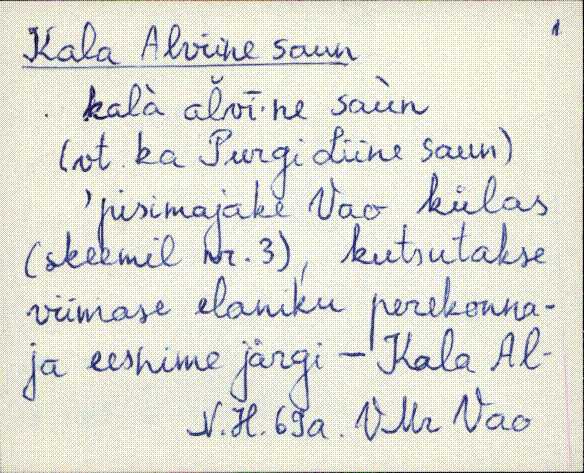 1
Kala Alviine saun
kalà ălvī·ne saùn
(vt. ka Purgi Liine saun)
'pisimajake Vao külas
(skeemil nr. 3), kutsutakse
viimase elaniku perekonna-
ja eesnime järgi – Kala Al-
N.H. 69a. VMr Vao